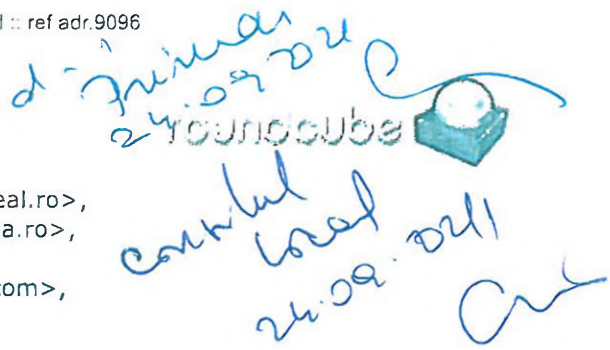 d :: ref adr.9096
d-
Primar
24.09.2021
roundcube
eal.ro>,
a.ro>,
Consiliul
Local
com>,
24.09.2021